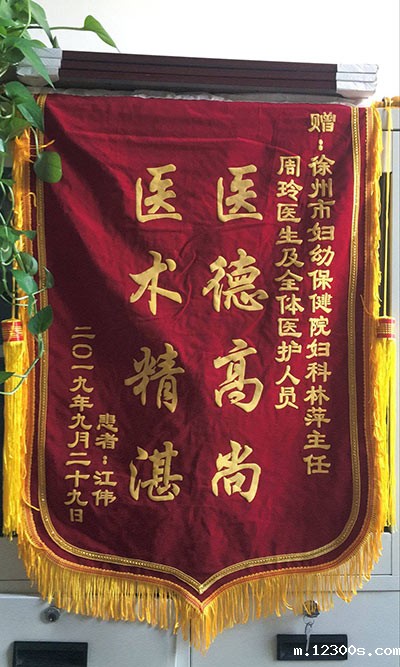 赠：徐州市妇幼保健院妇科林萍主任
周玲医生及全体医护人员
医德高尚
医术精湛
患者：江伟
二〇一九年九月二十九日
m.12300s.com